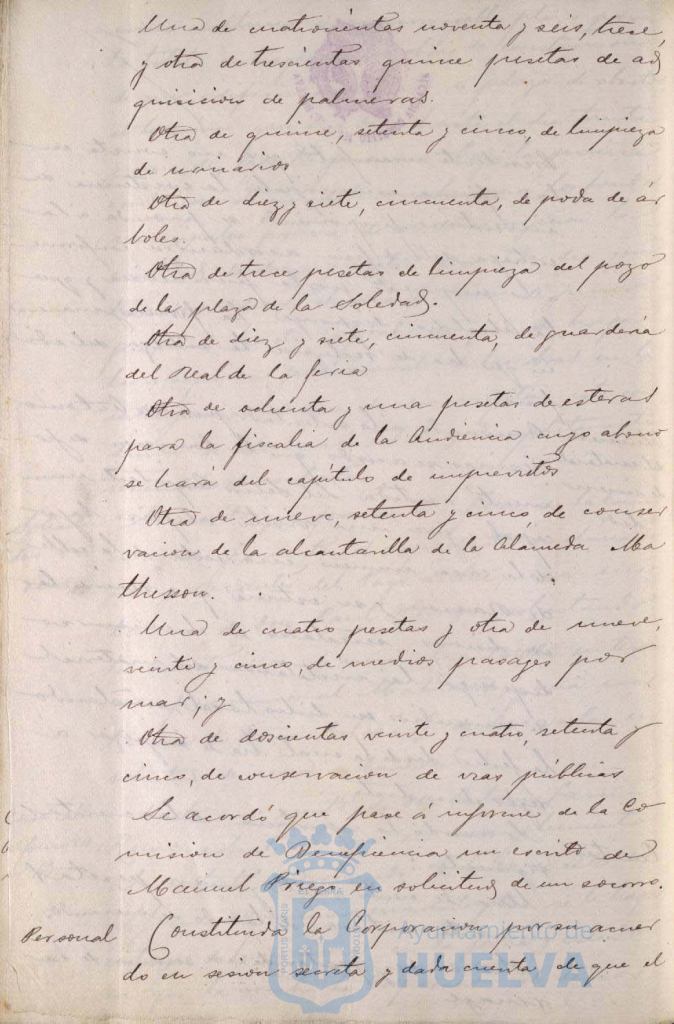 Una de cuatrocientas noventa y seis, trece,
y otra de trescientas quince pesetas de ad
quisicion de palmeras.
Otra de quince, setenta y cinco, de limpieza
de urinarios
Otra de diez y siete, cincuenta, de poda de ár
boles.
Otra de trece pesetas de limpieza del pozo
de la plaza de la Soledad.
Otra de diez y siete, cincuenta, de guarderia
del Real de la feria
Otra de ochenta y una pesetas de esteras
para la fiscalia de la Audiencia cuyo abono
se hará del capítulo de imprevistos
Otra de nueve, setenta y cinco, de conser
vacion de la alcantarilla de la Alameda Ma
thesson.
Una de cuatro pesetas y otra de nueve,
veinte y cinco, de medios pasages por
mar; y
Otra de doscientas veinte y cuatro, setenta y
cinco, de conservacion de vias públicas
Se acordó que pase á informe de la Co
mision de Beneficencia un escrito de
Manuel Priego en solicitud de un socorro.
Personal Constituida la Corporacion por su acuer
do en sesion secreta y dada cuenta de que el
Ayuntamiento de
HUELVA